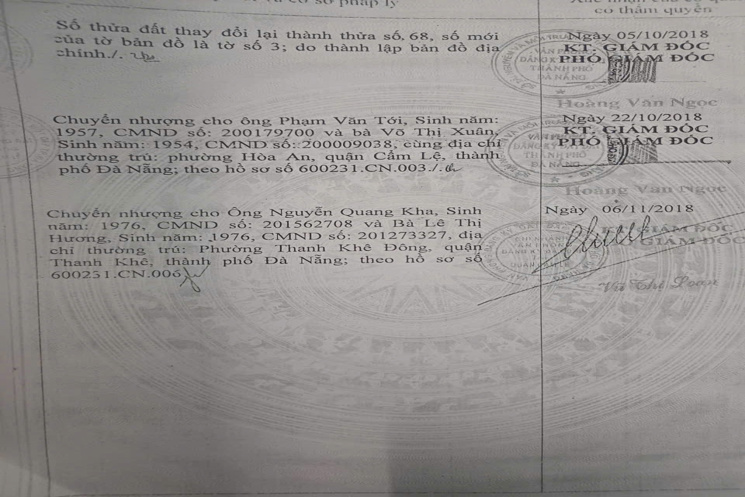 có thẩm quyền
Số thửa đất thay đổi lại thành thửa số 68, số mới
của tờ bản đồ là tờ số 3; do thành lập bản đồ địa
chính./.
Ngày 05/10/2018
KT. GIÁM ĐỐC
PHÓ GIÁM ĐỐC
Hoàng Văn Ngọc
Chuyển nhượng cho ông Phạm Văn Tới, Sinh năm:
1957, CMND số: 200179700 và bà Võ Thị Xuân,
Sinh năm: 1954, CMND số: 200009038, cùng địa chỉ
thường trú: phường Hòa An, quận Cẩm Lệ, thành
phố Đà Nẵng; theo hồ sơ số 600231.CN.003./.
Ngày 22/10/2018
KT. GIÁM ĐỐC
PHÓ GIÁM ĐỐC
Hoàng Văn Ngọc
Chuyển nhượng cho Ông Nguyễn Quang Kha, Sinh
năm: 1976, CMND số: 201562708 và Bà Lê Thị
Hương, Sinh năm: 1976, CMND số: 201273327, địa
chỉ thường trú: Phường Thanh Khê Đông, quận
Thanh Khê, thành phố Đà Nẵng; theo hồ sơ số
600231.CN.006
Ngày 06/11/2018
GIÁM ĐỐC
GIÁM ĐỐC
Vũ Thị Loan